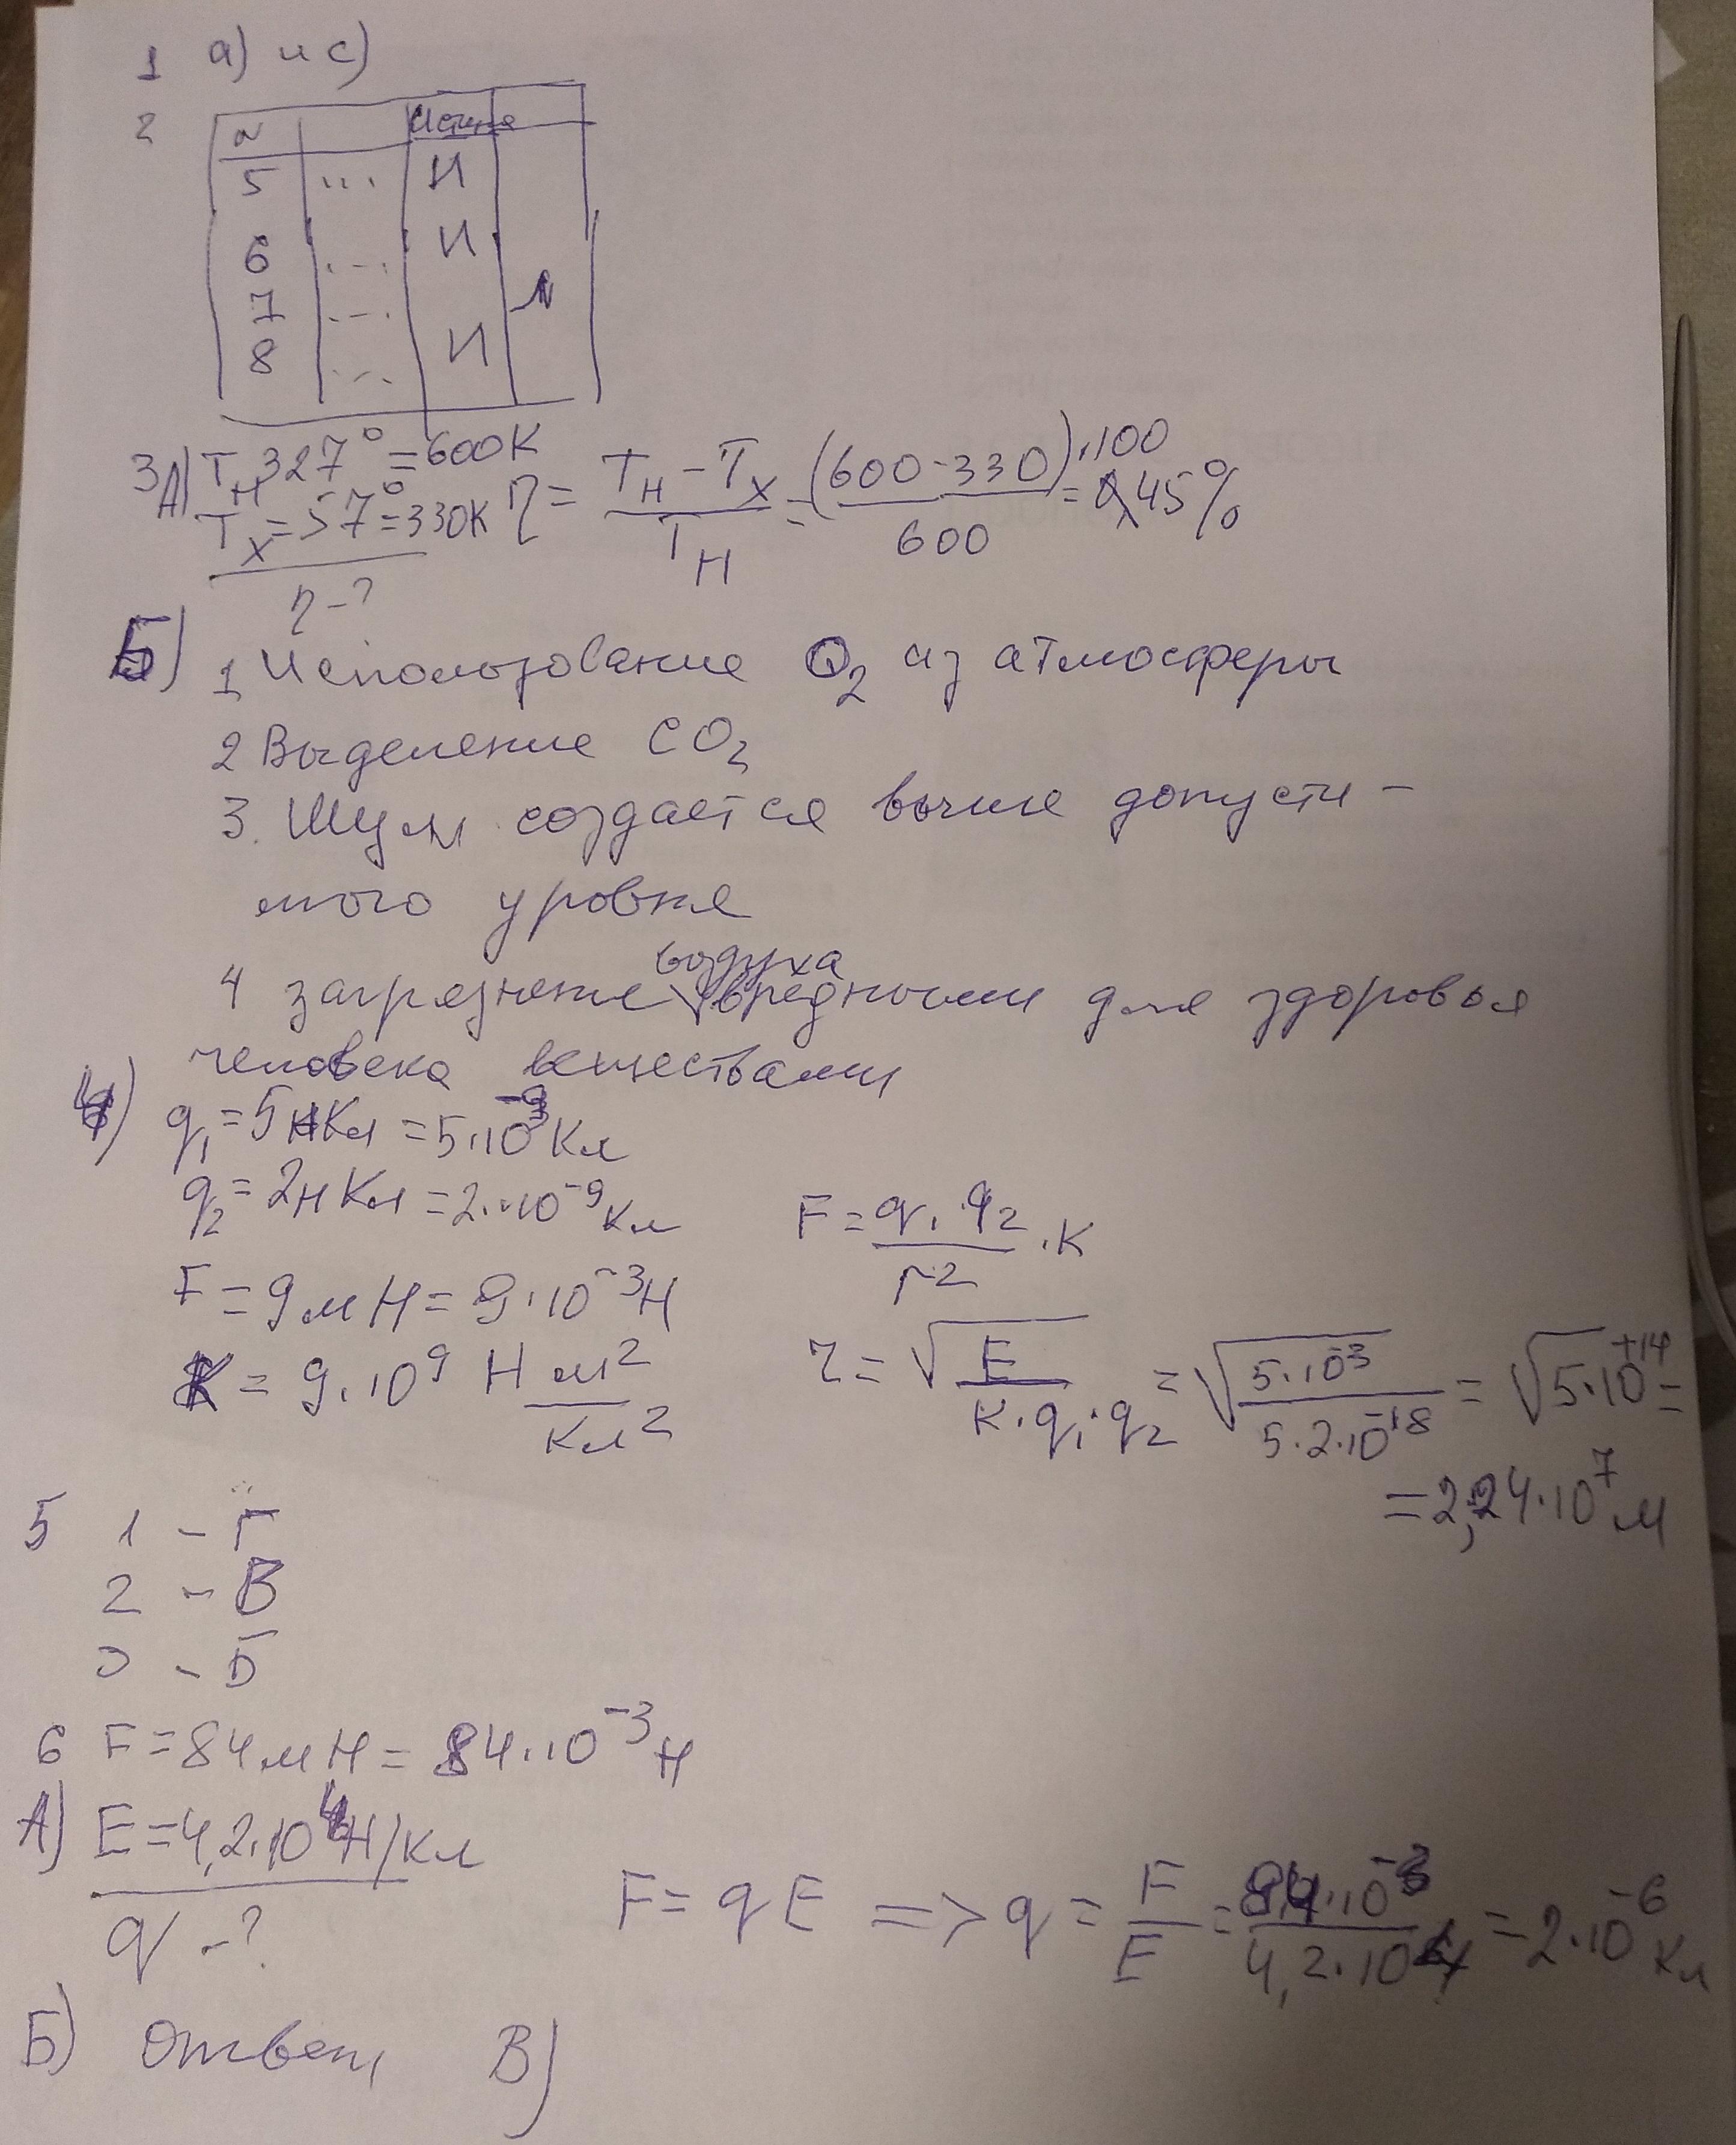 1 а) и с)
2
N Истина
5 ... И
6 ... И
7 ... Л
8 ... И
3 А) Tн 327° = 600К
Tх = 57° = 330К η = (Tн - Tх)/Tн = (600-330)·100/600 = 45%
η - ?
Б) 1 Использование O₂ из атмосферы
2 Выделение CO₂
3. Шум создается выше допусти-
мого уровня
4 загрязнение воздуха вредными для здоровья
человека веществами
4) q₁ = 5 нКл = 5·10⁻⁹ Кл
q₂ = 2нКл = 2·10⁻⁹ Кл
F = q₁·q₂/r² · К
F = 9 мН = 9·10⁻³Н
К = 9·10⁹ Н м²/Кл²
r = √(F/(К·q₁·q₂)) = √(5·10⁻³/(5·2·10⁻¹⁸)) = √5·10⁺¹⁴ =
= 2,24·10⁷ м
5 1 - Г
2 - В
3 - Б
6 F = 84 мН = 84·10⁻³ Н
А) E = 4,2·10⁴Н/Кл
q - ?
F = qE => q = F/E = 84·10⁻³/4,2·10⁴ = 2·10⁻⁶ Кл
Б) Ответ В)